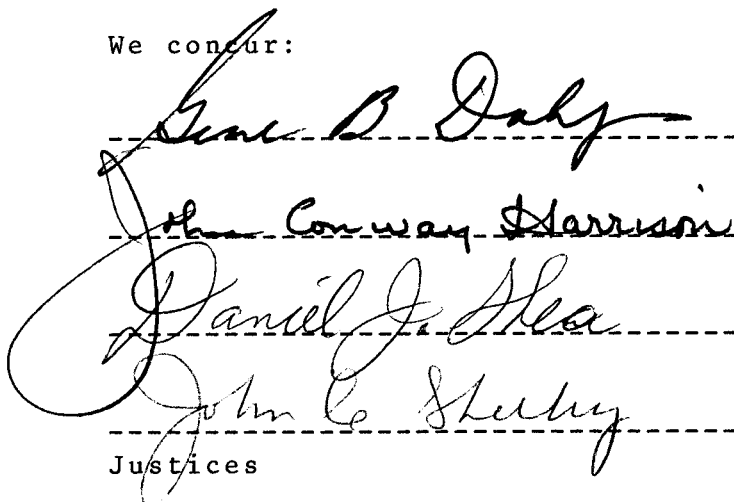 We concur:
Gene B Daly
John Conway Harrison
Daniel J. Shea
John C Sheehy
Justices